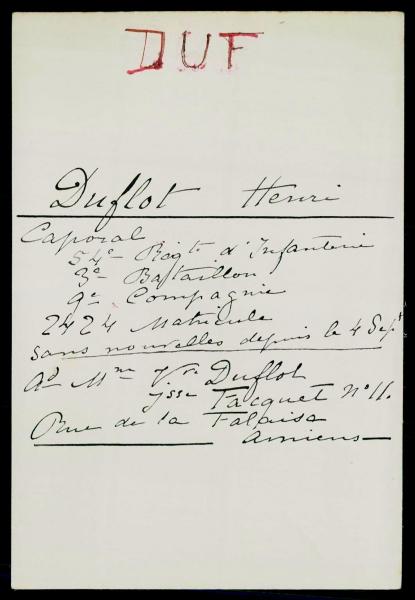 DUF
Duflot Henri
Caporal
54e Rég.t d'Infanterie
3e Bataillon
9e Compagnie
2424 Matricule
Sans nouvelles depuis le 4 Sept
Ad Mme Vve Duflot
Facquet No 11.
Rue de la Falaise
Amiens